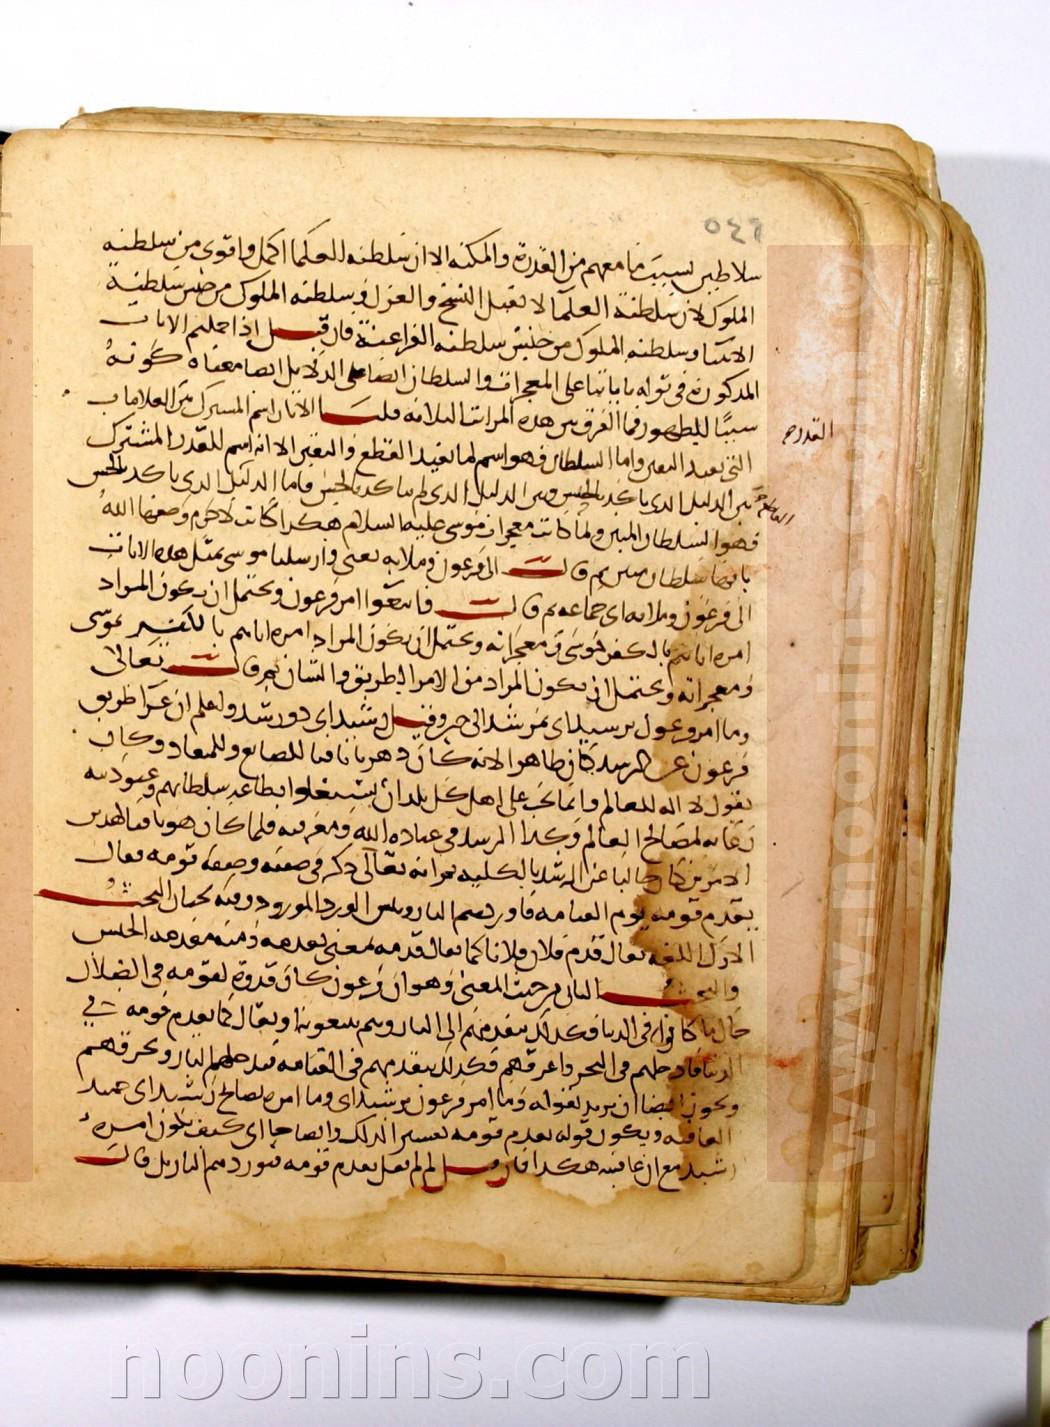 ٥٤٦
سلاطين بسبب ما معهم من القدرة والمكنة الا ان سلطنة الحكما اكمل واقوى من سلطنة
الملوك لان سلطنة العلما لا تقبل النسخ والعزل وسلطنة الملوك من جنس سلطنة
الانبيا وسلطنة الملوك من جنس سلطنة الفراعنة فان قيل اذا حملتم الايات
المذكورة في قوله باياتنا على المعجزات والسلطان ايضا على الدلايل ايضا معناه كونه
سببا للظهور فما الفرق بين هذه المراتب الثلاثة قلت الايات اسم للمشترك بين العلامات
التي تفيد اليقين واما السلطان فهو اسم لما يفيد القطع واليقين الا انه اسم للقدر المشترك
بين الدليل الذي تاكد بالحس وبين الدليل الذي لم يتاكد بالحس فاما الدليل الذي تاكد بالحس
فهو السلطان المبين ولما كانت معجزات موسى عليه السلام هكذا كانت لا جرم وصفها الله
بانها سلطان مبين ثم قال الى فرعون وملايه يعني وارسلنا موسى بمثل هذه الايات
الى فرعون وملايه اي جماعه ثم قال فاتبعوا امر فرعون ويحتمل ان يكون المراد
امره اياهم بالكفر بموسى ومعجزاته ويحتمل ان يكون المراد امره اياهم بالكفر بموسى
ومعجزاته ويحتمل ان يكون المراد من الامر الطريق والشان ثم قال تعالى
وما امر فرعون برشيد اي بمرشد الى خير وقيل رشيد اي ذو رشد واعلم ان عدا طريق
فرعون عن الرشد كان ظاهرا لانه كان دهريا نافيا للصانع وللمعاد وكان
يقول لا اله للعالم وانما يجب على اهل كل بلد ان يشتغلوا بطاعة سلطانهم وعبوديته
رعاية لمصالح العالم وكذا الرشد في عبادة الله ومعرفته فلما كان هو نافيا لهذين
الامرين كان خاليا عن الرشد بالكلية ثم انه تعالى ذكر في صفته وصفة قومه فقال
يقدم قومه يوم القيامة فاوردهم النار وبئس الورد المورود وفيه بحثان البحث
الاول اللغة يقال قدم فلان فلانا كما يقال قدمه بمعنى تقدمه ومنه مقدمه الجيش
والبحث الثاني من حيث المعنى وهو ان فرعون كان قدوة لقومه في الضلال
حال ما كانوا في الدنيا فكذلك يتقدمهم الى النار وهم يتبعونه او يقال كما تقدم قومه في
الدنيا فادخلهم في البحر واغرقهم فكذلك يتقدمهم في القيامة فيدخلهم النار ويحرقهم
ويجوز ايضا ان يريد بقوله وما امر فرعون برشيد اي وما امره بصالح رشيد اي حميد
العاقبة ويكون قوله يقدم قومه تفسيرا لذلك وايضاحا اي كيف يكون امره
رشيد مع ان عاقبته هكذا فان قيل لم لم يقل يقدم قومه فيوردهم النار بل قال
القدر صح